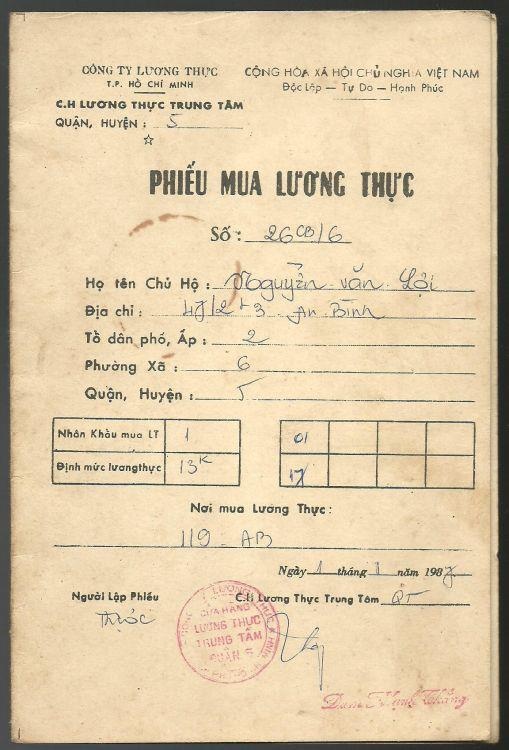 CÔNG TY LƯƠNG THỰC
T.P. HỒ CHÍ MINH
C.H LƯƠNG THỰC TRUNG TÂM
QUẬN, HUYỆN : 5
CỘNG HÒA XÃ HỘI CHỦ NGHĨA VIỆT NAM
Độc Lập — Tự Do — Hạnh Phúc
PHIẾU MUA LƯƠNG THỰC
Số : 26CB/6
Họ tên Chủ Hộ : Nguyễn Văn Lợi
Địa chỉ : An Bình
Tổ dân phố, Áp : 2
Phường Xã : 6
Quận, Huyện : 5
Nhân Khẩu mua LT 1 01
Định mức lươngthực 13K 17
Nơi mua Lương Thực :
119 - AB
Ngày 1 tháng 1 năm 1987
Người Lập Phiếu C.H Lương Thực Trung Tâm QT
CỬA HÀNG
LƯƠNG THỰC
TRUNG TÂM
QUẬN 5